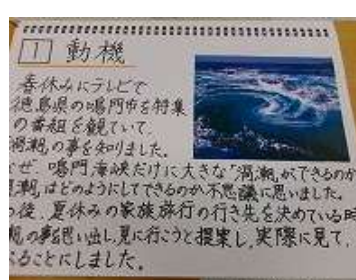 1 動機
春休みにテレビで
徳島県の鳴門市を特集
の番組を観ていて
渦潮の事を知りました。
ぜ、鳴門海峡だけに大きな“渦潮”ができるのか
潮はどのようにしてできるのか、不思議に思いました。
の後、夏休みの家族旅行の行き先を決めている時
潮の事を思い出し、見に行こうと提案し、実際に見て、
ることにしました。